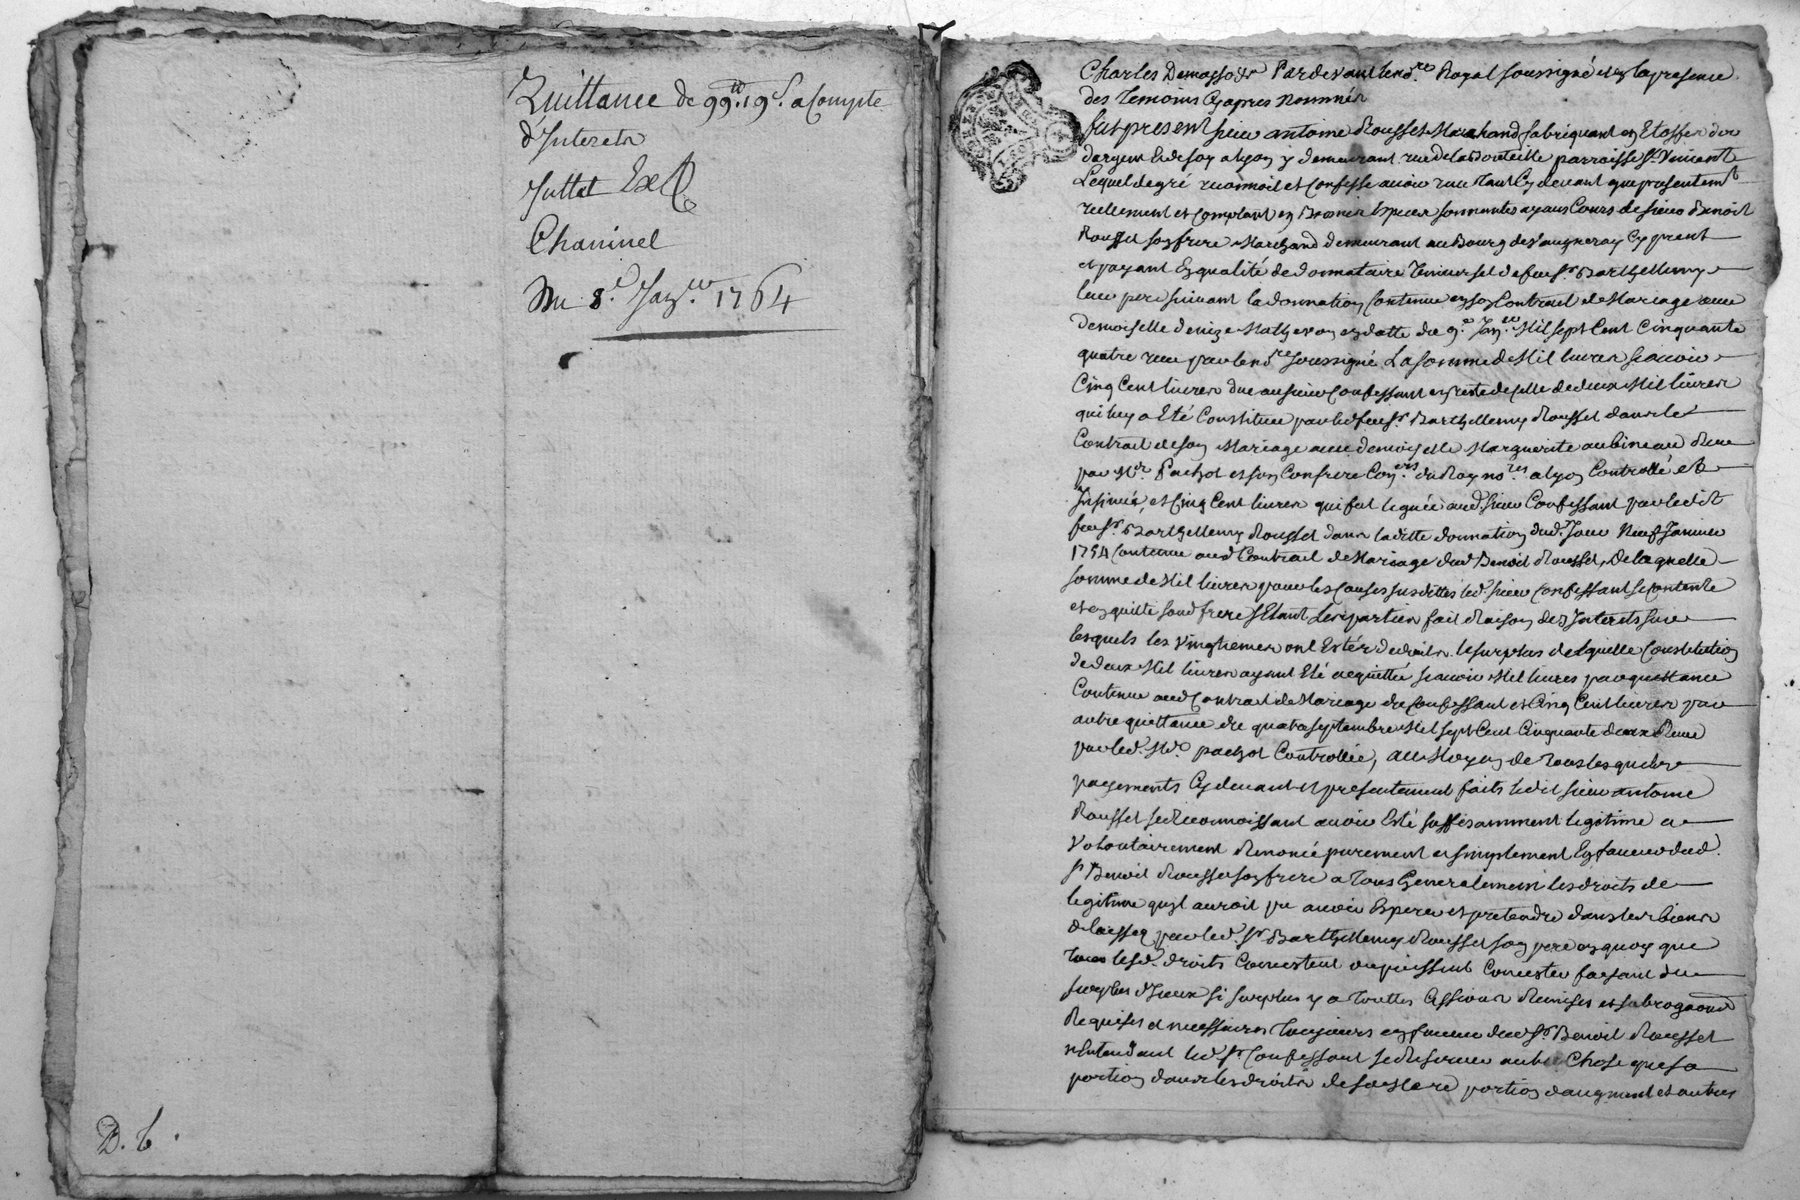 Quittance de 99ᵗᵗ. 19ˢ. a Compte
d'Interets
Juttet Exp
Chaninel
Du 8.ᵉ Janᵉʳ. 1764
D. b.
Pardevant le noʳᵉ Royal soussigné et en la presence
des temoins Cyapres Nommés
fut present sieur antoine Rousset Marchand fabriquant en Etoffes d'or
d'argent & de soy a Lyon y demeurant rue de la Bouteille parroisse Sᵗ Vincent
Lequel de gré reconnoit et Confesse avoir receu tant Cy devant que presentemᵗ
reellement et Comptant en Bonnes Espèces sonnantes ayans Cours de sieur Benoit
Rousset son frere Marchand demeurant au Bourg de Vaugneray Cy present
et payant En qualité de donnataire universel de feu sʳ Barthellemy
leur pere suivant la donnation Contenue en son Contract de Mariage avec
demoiselle denize Mathevon en datte du 9.ᵉ Janᵉʳ. Mil sept Cent Cinquante
quatre receu par le noʳᵉ soussigné La somme de Mil livres scavoir
Cinq Cent livres due au sieur Confessant en reste de celle de deux Mil livres
qui luy a Eté Constituee par led feu sʳ Barthellemy Rousset dans le
Contract de son Mariage avec demoiselle Marguerite aubineau Receu
par Mᵉ. Pachot et son Confrere Conᵉʳˢ. du Roy noʳᵉˢ a Lyon Controllé et
Insinué, et Cinq Cent livres qui fut leguée aud. sieur Confessant par ledit
feu sʳ Barthellemy Rousset dans laditte donnation dud. Jour Neuf Janvier
1754 Contenue aud Contract de Mariage dud Benoit Rousset, De laquelle
somme de Mil livres pour les Causes susdittes led. sieur Confessant se Contente
et en quitte sond frere s'Etant Les parties fait Raison des Interets sur
lesquels les Vingtiemes ont Estés deduits le surplus de laquelle Constitution
de deux Mil livres ayant Eté acquittée scavoir Mil livres par quittance
Contenue aud Contract de Mariage du Confessant et Cinq Cent livres par
autre quittance du quatre septembre Mil sept Cent Cinquante deux Receue
par led. Mᵉ pachot Controllée, au Moyen de tous lesquels
payements Cy devant et presentement faits ledit sieur antoine
Rousset se Reconnoissant avoir Esté suffisamment legitimé a
Volontairement Renoncé purement et simplement En faveur dud.
sʳ Benoit Rousset son frere a tous Generalement les droits de
legitime qu'il auroit pu avoir Esperer et pretendre dans les biens
delaissez par led. sʳ Barthellemy Rousset son pere en quoy que
tous lesd. droits Consistent ou puissent Consister faisant du
surplus d'Iceux si surplus y a touttes Cessions Remises et subrogaons
Requises et necessaires toujours en faveur dud sʳ Benoit Rousset
n'Entendant led sʳ Confessant se Reserver autre Chose que sa
portion dans les droits de sa Mere portion d'augment et autres